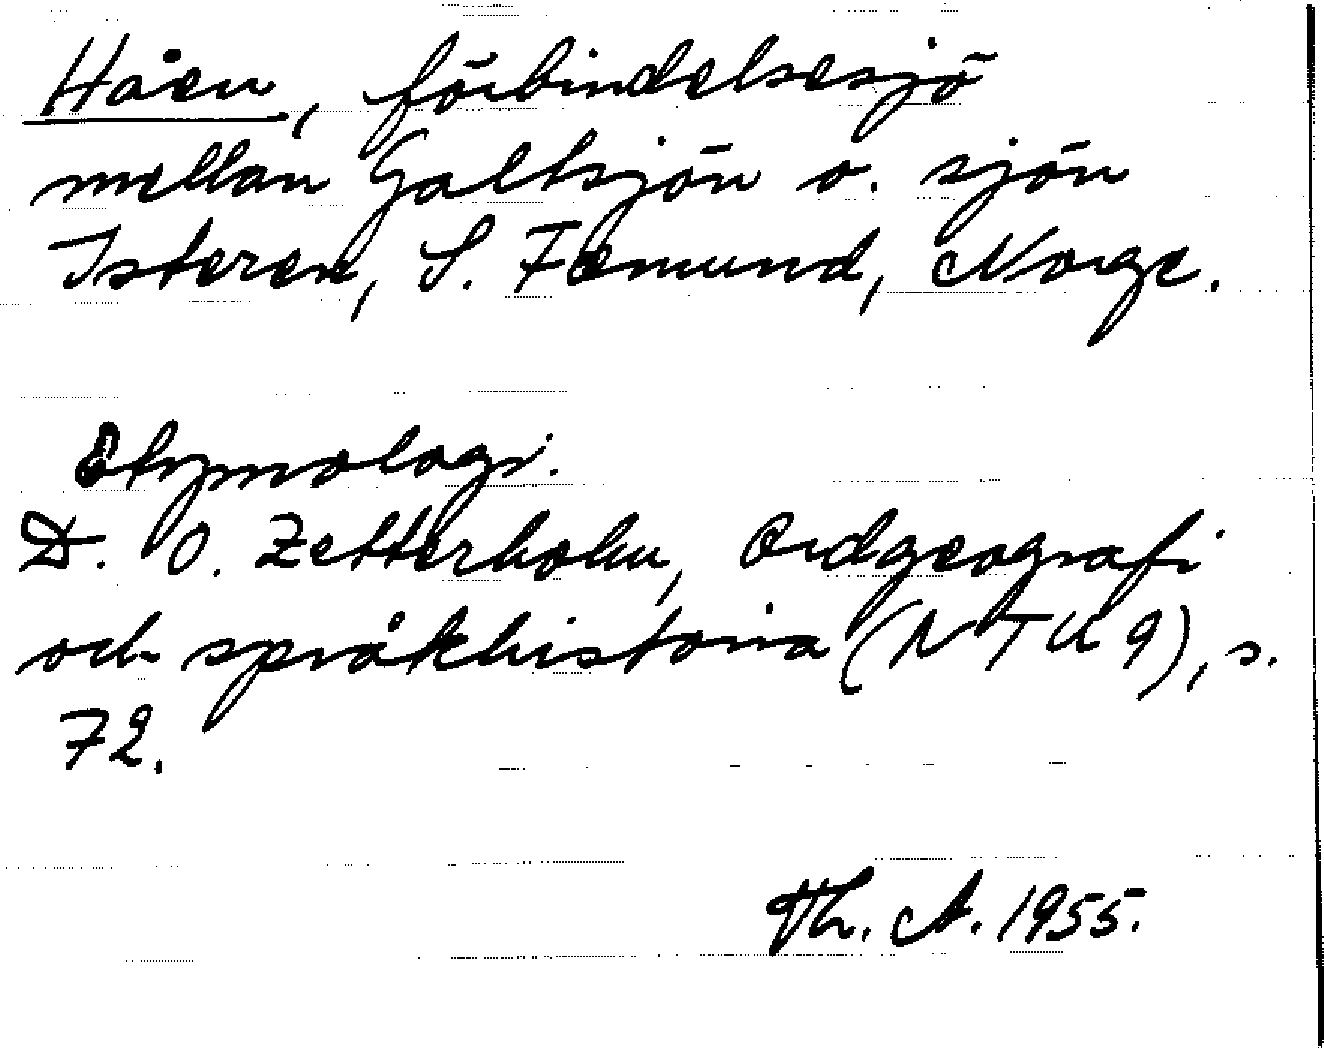 Håen, förbindelsesjö
mellan Galtsjön o. sjön
Isteren, S. Femund, Norge.
Etymologi.
D. O. Zetterholm, Ordgeografi
och språkhistoria (NTU 9), s.
72.
Th. A. 1955.